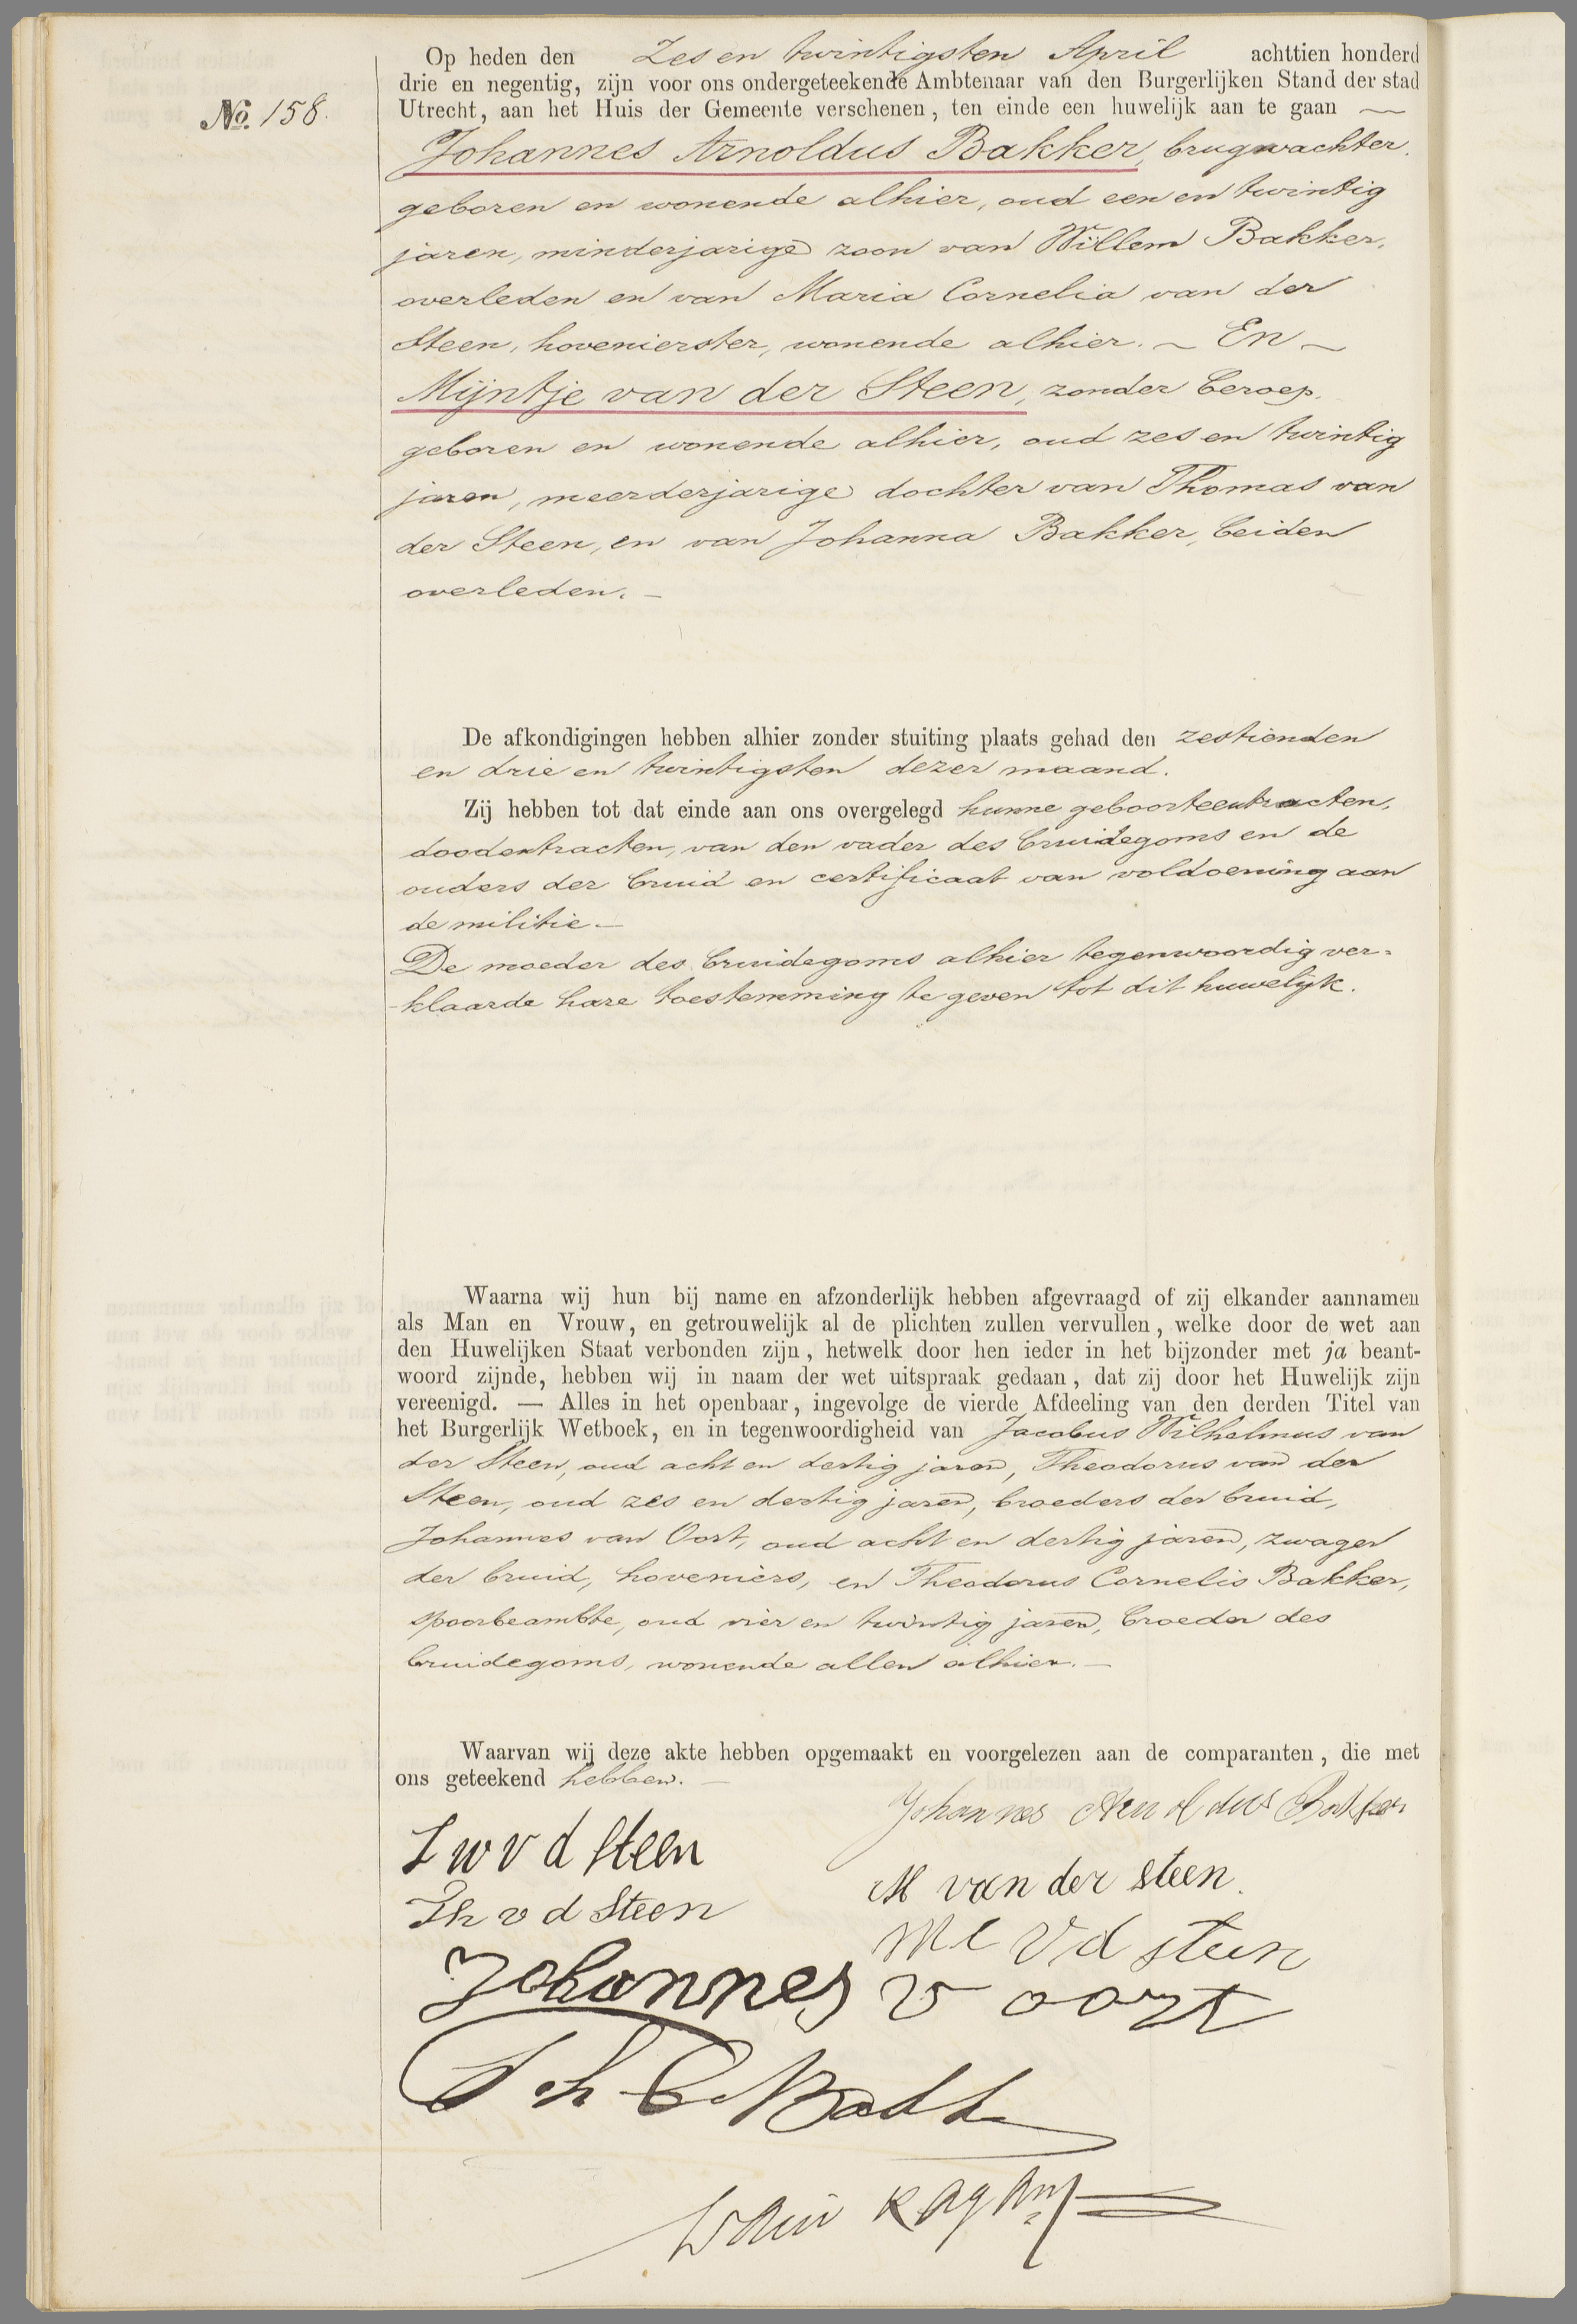 Op heden den Zes en twintigsten April achttien honderd
drie en negentig, zijn voor ons ondergeteekende Ambtenaar van den Burgerlijken Stand der stad
No. 158.
Utrecht, aan het Huis der Gemeente verschenen, ten einde een huwelijk aan te gaan —
Johannes Arnoldus Bakker, brugwachter,
geboren en wonende alhier, oud een en twintig
jaren, minderjarige zoon van Willem Bakker,
overleden en van Maria Cornelia van der
Steen, hovenierster, wonende alhier. — En —
Mijntje van der Steen, zonder beroep,
geboren en wonende alhier, oud zes en twintig
jaren, meerderjarige dochter van Thomas van
der Steen, en van Johanna Bakker, beiden
overleden. —
De afkondigingen hebben alhier zonder stuiting plaats gehad den zestienden
en drie en twintigsten dezer maand.
Zij hebben tot dat einde aan ons overgelegd hunne geboorteextracten,
doodextracten, van den vader des bruidegoms en de
ouders der bruid en certificaat van voldoening aan
de militie. —
De moeder des bruidegoms alhier tegenwoordig ver-
-klaarde hare toestemming te geven tot dit huwelijk.
Waarna wij hun bij name en afzonderlijk hebben afgevraagd of zij elkander aannamen
als Man en Vrouw, en getrouwelijk al de plichten zullen vervullen, welke door de wet aan
den Huwelijken Staat verbonden zijn, hetwelk door hen ieder in het bijzonder met ja beant-
woord zijnde, hebben wij in naam der wet uitspraak gedaan, dat zij door het Huwelijk zijn
vereenigd. — Alles in het openbaar, ingevolge de vierde Afdeeling van den derden Titel van
het Burgerlijk Wetboek, en in tegenwoordigheid van Jacobus Wilhelmus van
der Steen, oud acht en dertig jaren, Theodorus van der
Steen, oud zes en dertig jaren, broeders der bruid,
Johannes van Oort, oud acht en dertig jaren, zwager
der bruid, hoveniers, en Theodorus Cornelis Bakker,
spoorbeambte, oud vier en twintig jaren, broeder des
bruidegoms, wonende allen alhier. —
Waarvan wij deze akte hebben opgemaakt en voorgelezen aan de comparanten, die met
ons geteekend hebben. —
Johannes Arnoldus Bakker
J W v d Steen
M van der Steen.
Th v d Steen
M C v d Steen
Johannes v oort
Th C Bakk